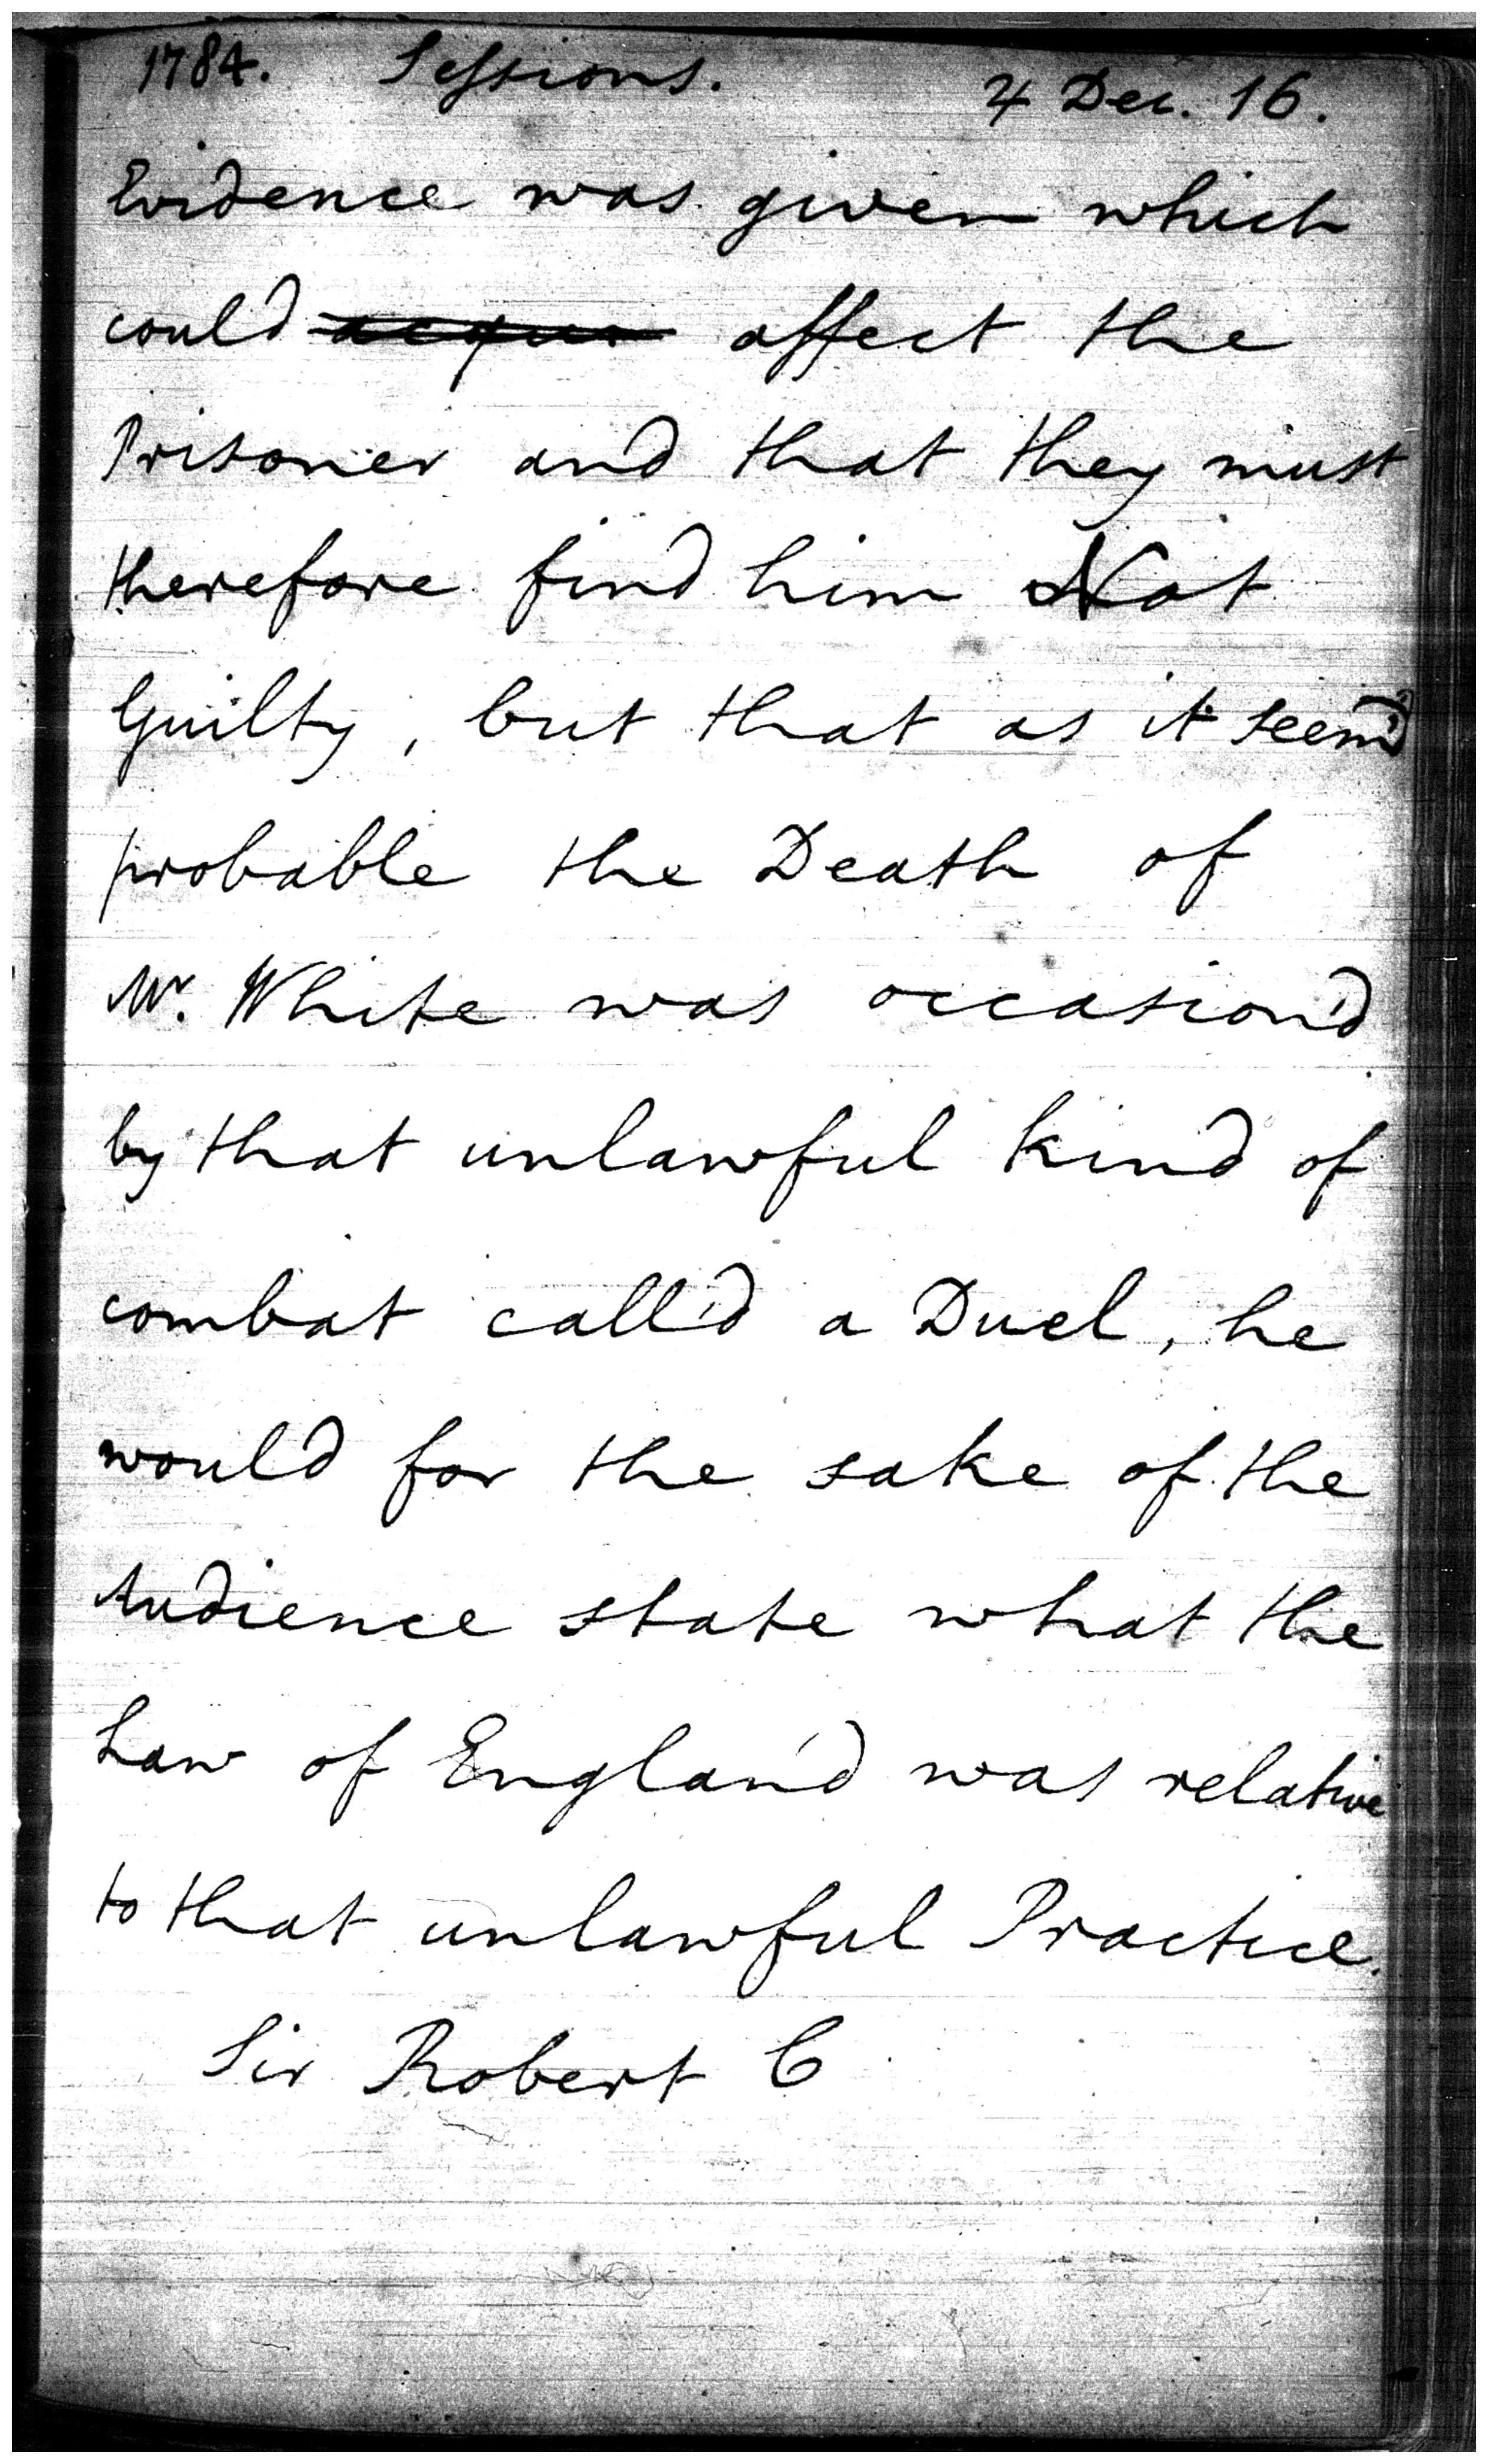 1784. Sessions. 4 Dec. 16.
Evidence was given which
could affect the
Prisoner and that they must
therefore find him Not
Guilty, but that as it seem'd
probable the Death of
Mr. White was occasion'd
by that unlawful kind of
combat call'd a Duel, he
would for the sake of the
Audience state what the
Law of England was relative
to that unlawful Practice.
Sir Robert C